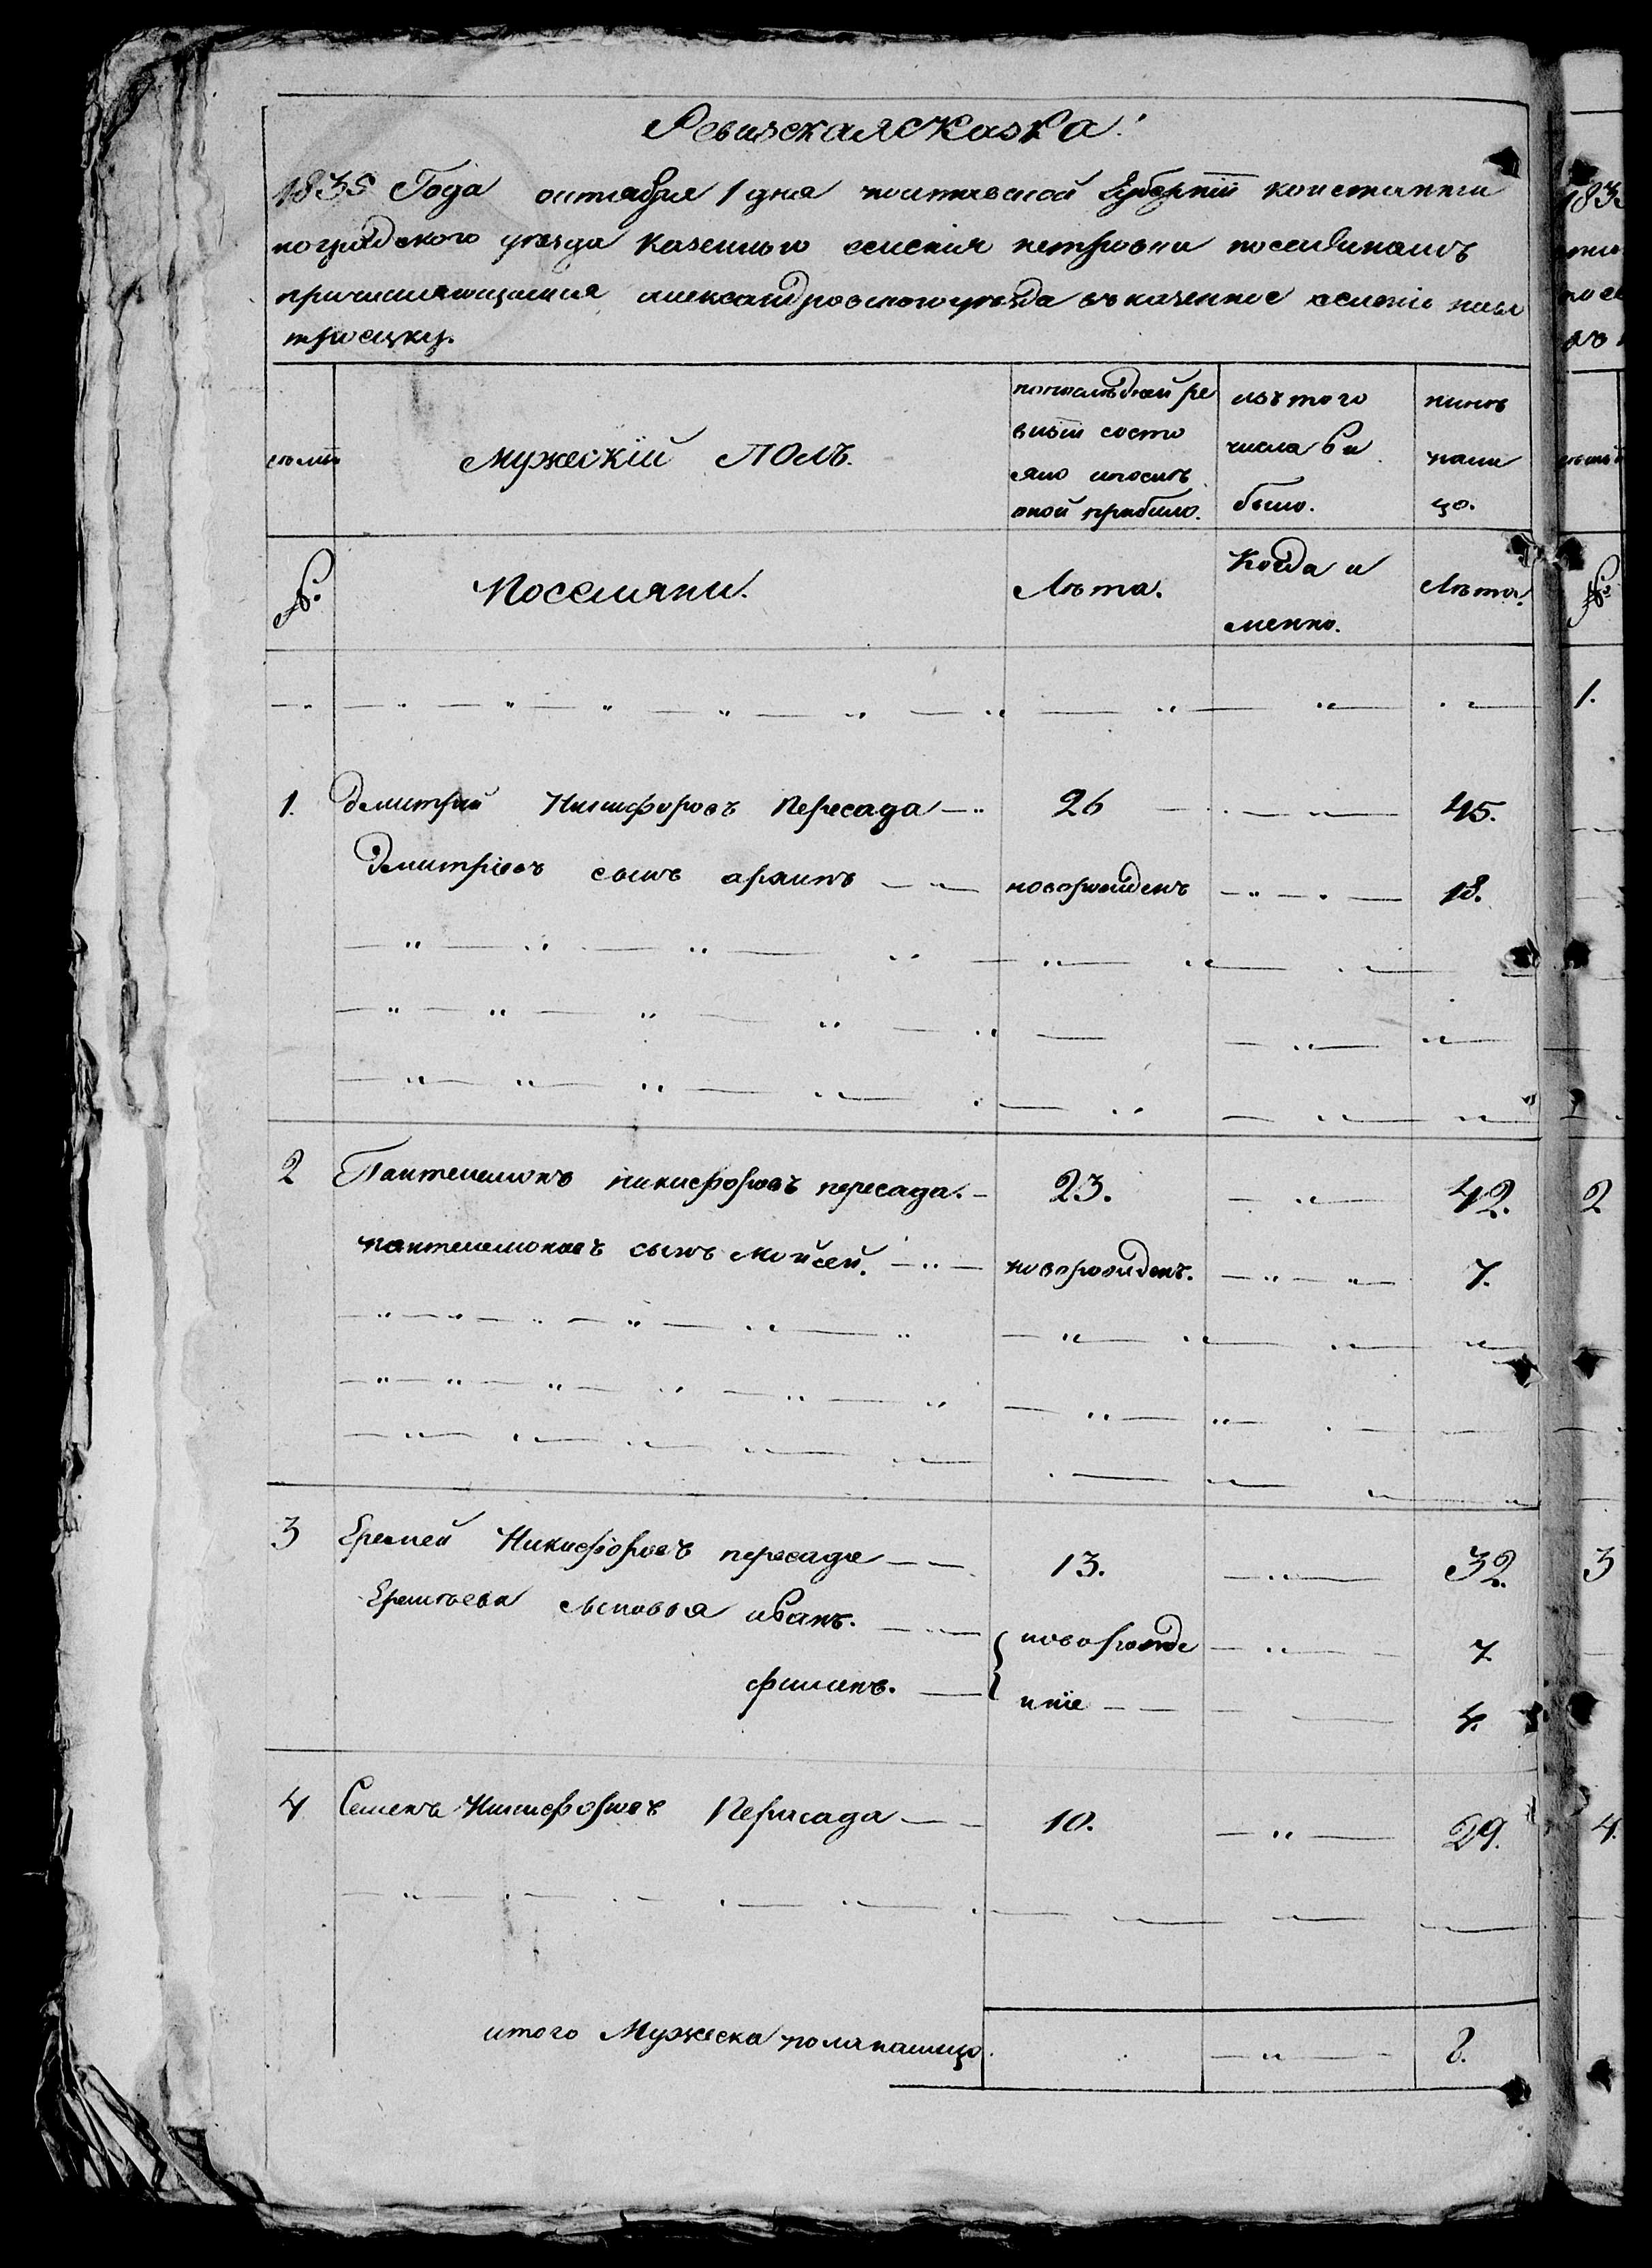 Ревизская сказка.
1835 Года октября 1 дня полтавской губернiи константи
ноградского уезда казеннаго селенiя петровки поселянамъ
причисляющимся александровского уезда въ казенное селенiе ново
троецку.
Мужескiй полъ.
попоследней ре
визiи состо
яло ипослѣ
оной прибыло.
изъ того
числа вы
было.
нынѣ
нали
цо.
№. Поселяни. Лѣта. Когда и
менно. Лѣта.
1. Дмитрий Никифоровъ Пересада 26 45.
Дмитрiевъ сынъ новорожденъ 18.
2 Пантелемонъ никифоровъ пересада. 23. 42.
пантелемоновъ сынъ Мойсей. новорожденъ. 7.
3 Еремей Никифоровъ пересада 13. 32.
Еремѣева сыновья иванъ. новорожде 7
филипъ. нiе 4.
4 Семенъ Никифоровъ Пересада 10. 29.
итого Мужеска пола налицо 8.
183
1.
2
3
4.